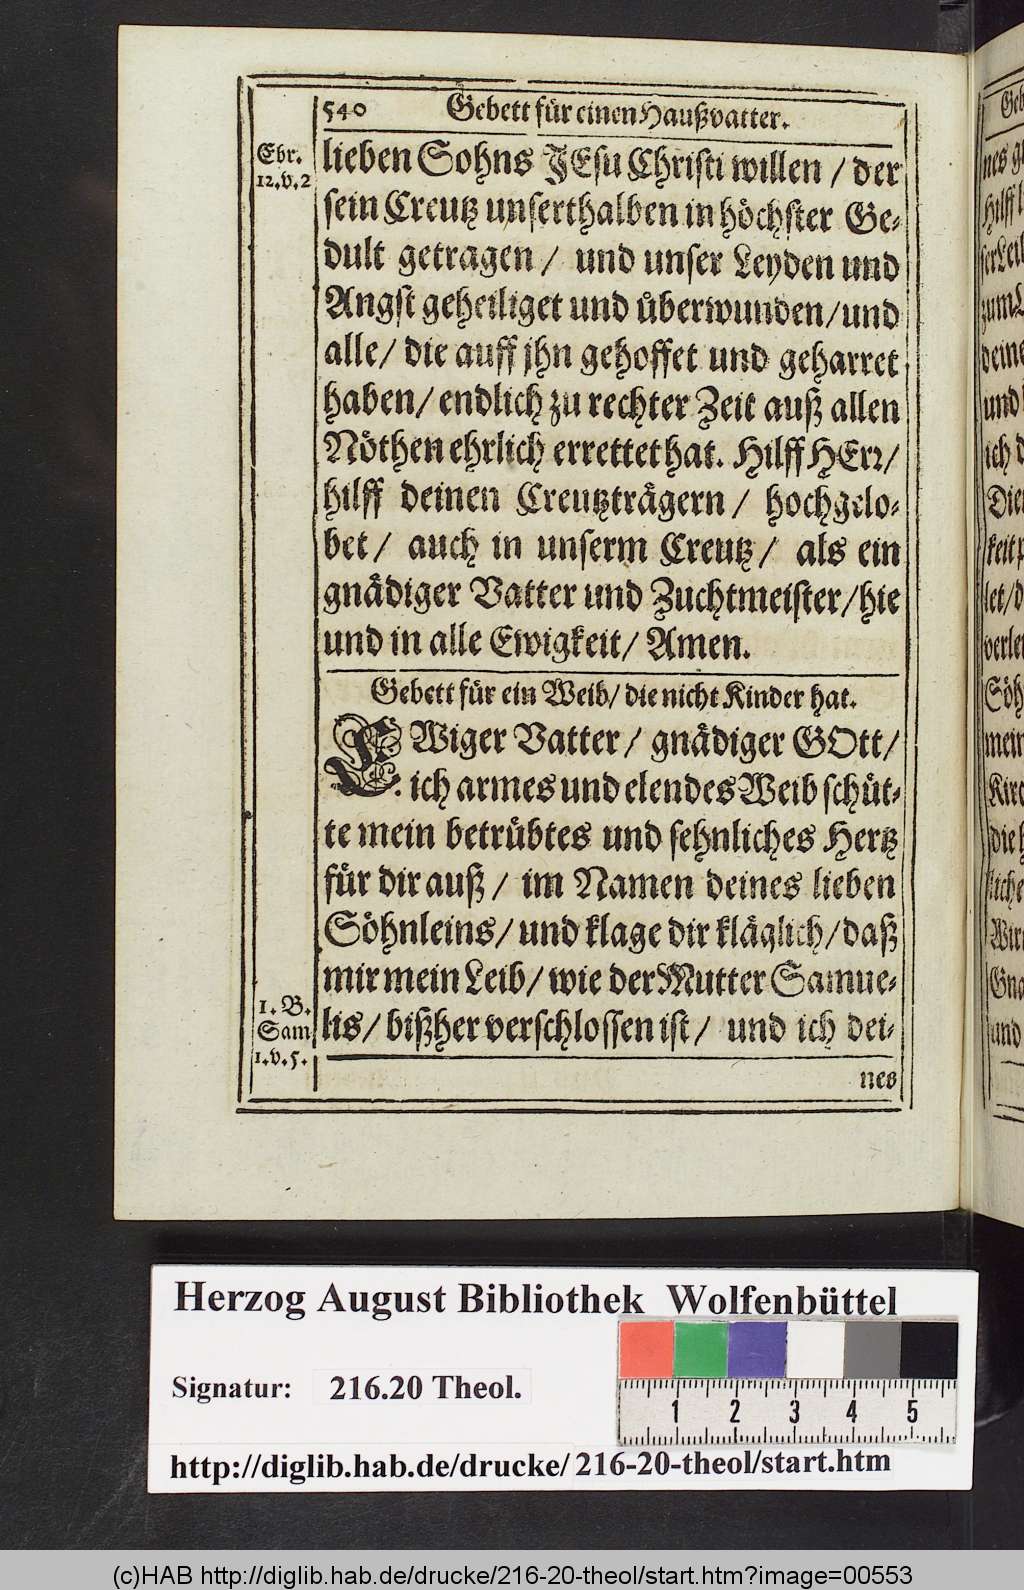 540 Gebett für einen Haußvatter.
Ebr.
12.v.2
lieben Sohns JEsu Christi willen / der
sein Creutz unserthalben in höchster Ge-
dult getragen / und unser Leyden und
Angst geheiliget und überwunden/und
alle/ die auff jhn gehoffet und geharret
haben/ endlich zu rechter Zeit auß allen
Nöthen ehrlich errettet hat. Hilff HErr/
hilff deinen Creutzträgern / hochgelo-
bet / auch in unserm Creutz / als ein
gnädiger Vatter und Zuchtmeister/hie
und in alle Ewigkeit/ Amen.
Gebett für ein Weib/ die nicht Kinder hat.
EWiger Vatter/ gnädiger GOtt/
ich armes und elendes Weib schüt-
te mein betrübtes und sehnliches Hertz
für dir auß / im Namen deines lieben
Söhnleins/ und klage dir kläglich/daß
mir mein Leib/ wie der Mutter Samue-
1. B.
Sam
1.v.5.
lis/ bißher verschlossen ist/ und ich dei-
nes
Geb
nes
Hilff
zum
deine
und
ich
let/d
Söh
mein
die
und
Herzog August Bibliothek Wolfenbüttel
Signatur: 216.20 Theol.
1 2 3 4 5
http://diglib.hab.de/drucke/216-20-theol/start.htm
(c)HAB http://diglib.hab.de/drucke/216-20-theol/start.htm?image=00553